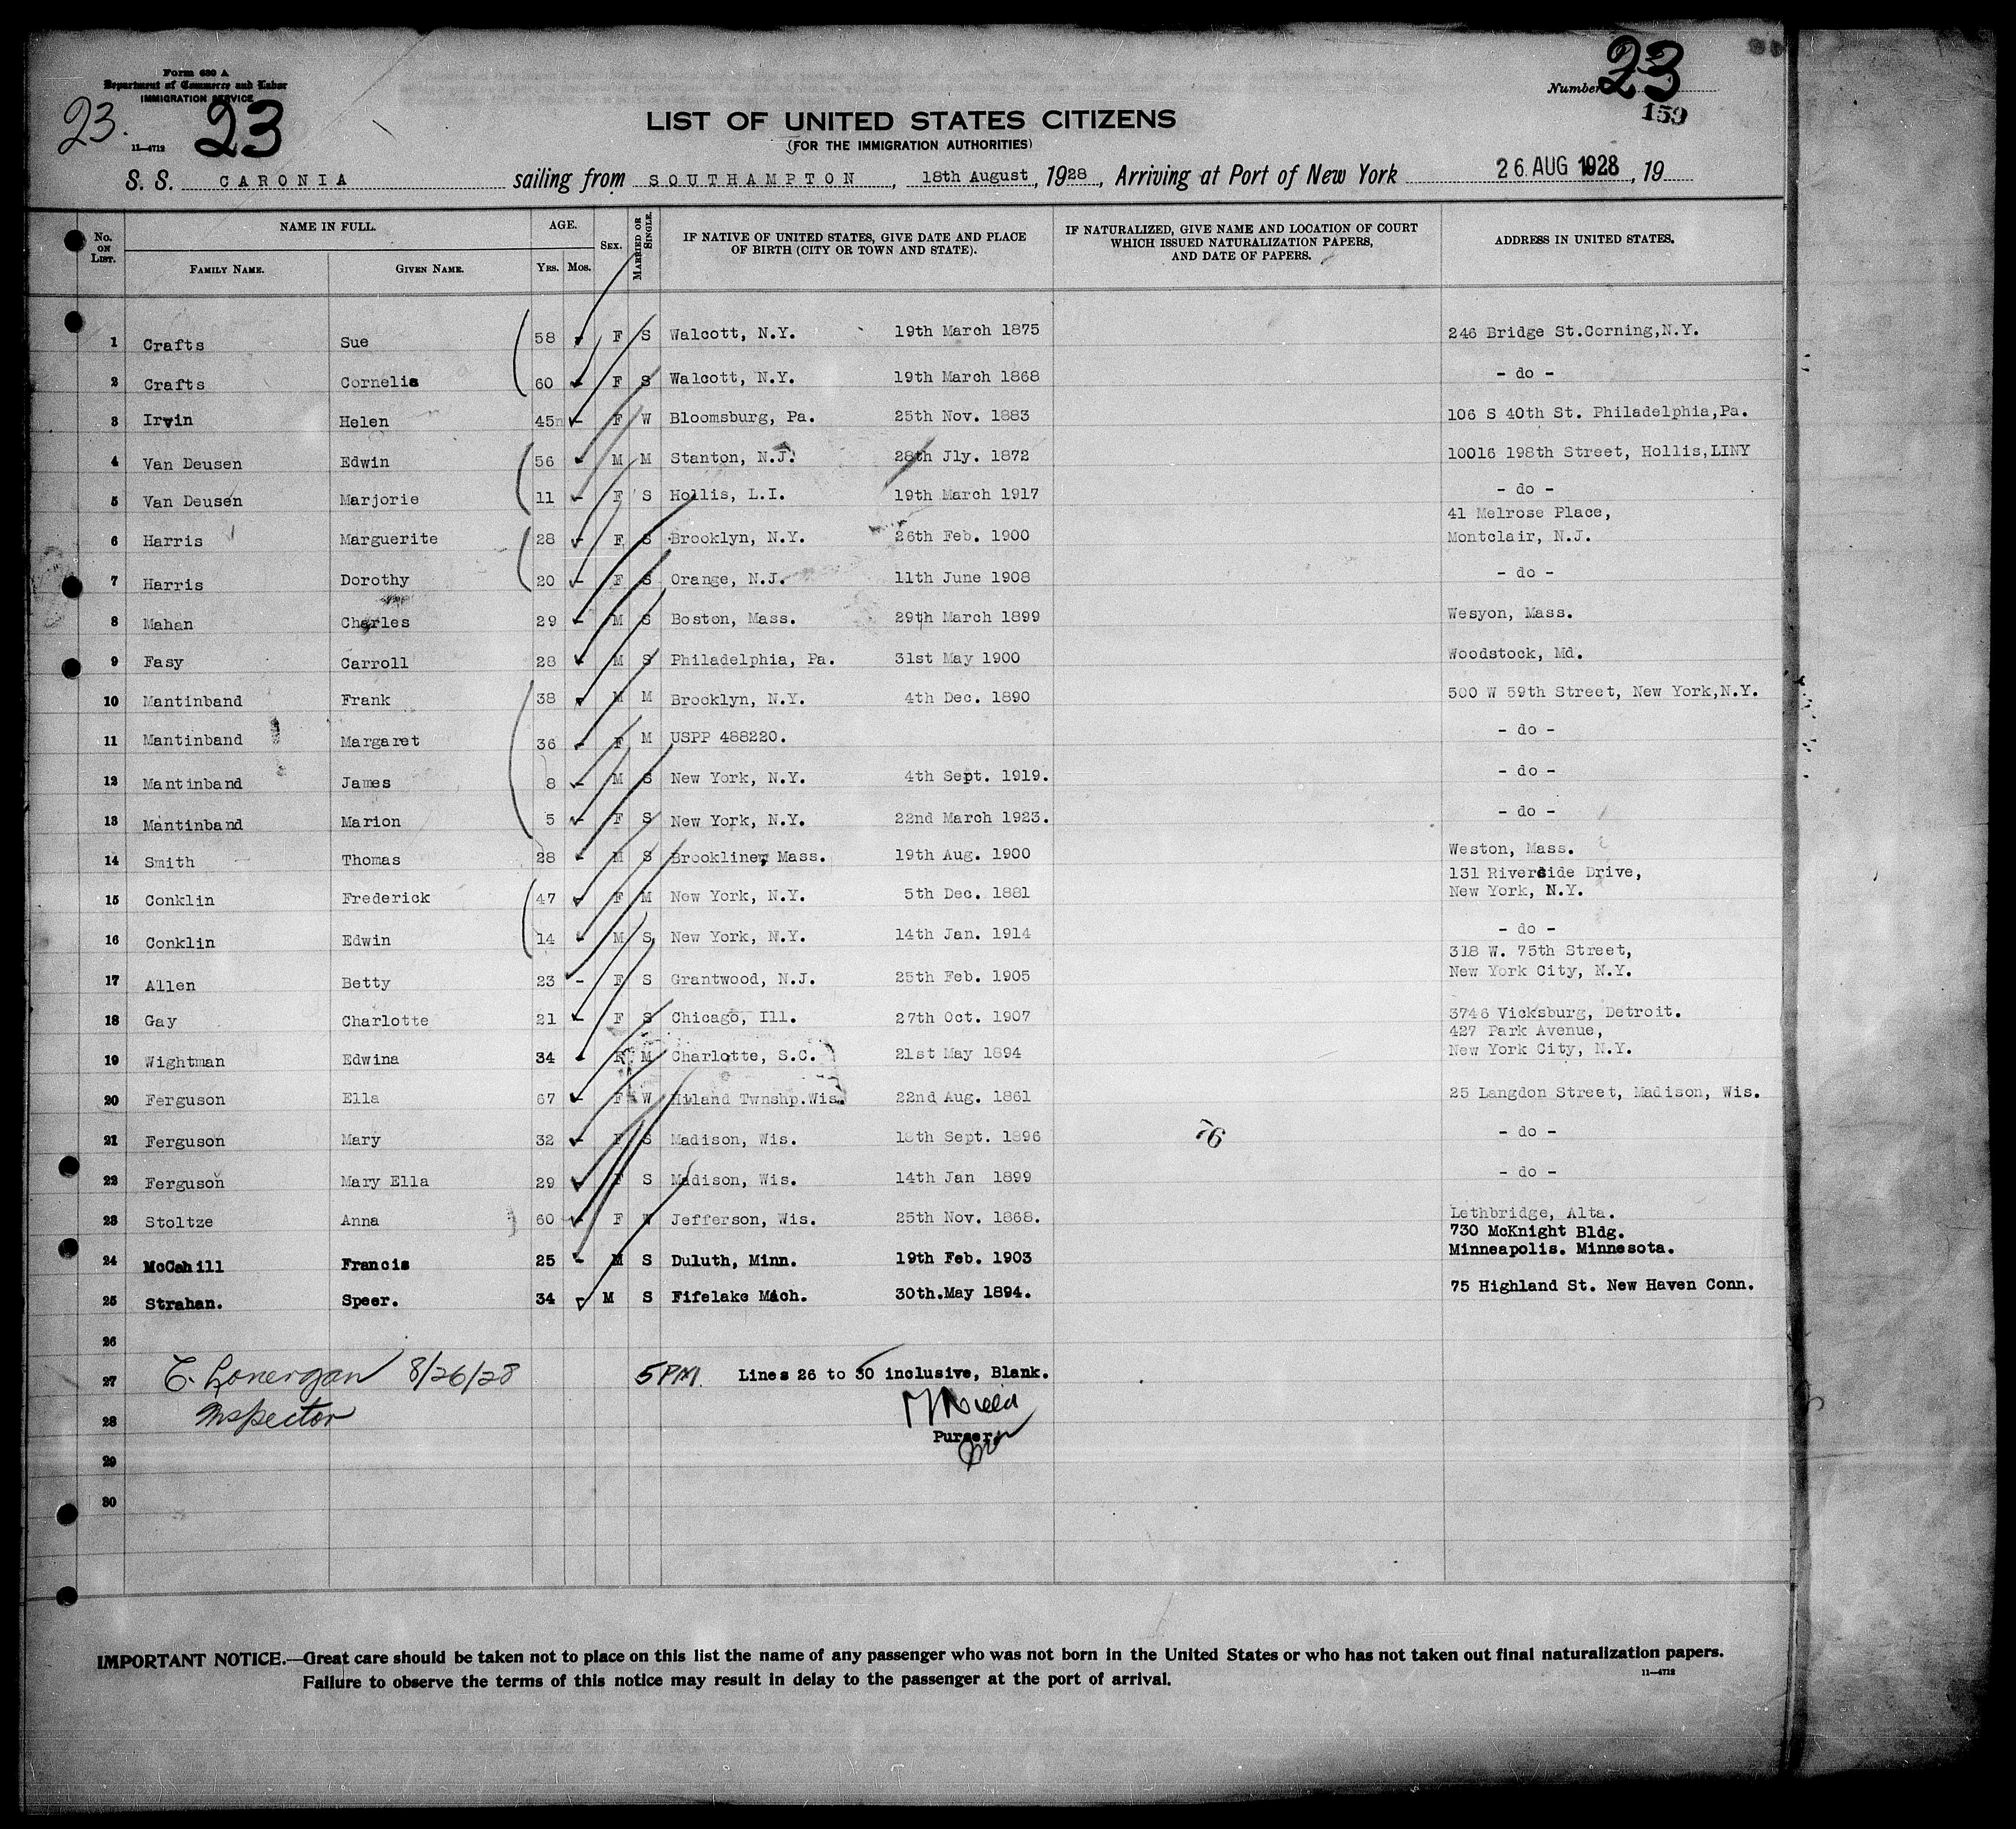 Form 630 A
Department of Commerce and Labor
IMMIGRATION SERVICE
23.
23
11—4712
Number 23
159
LIST OF UNITED STATES CITIZENS
(FOR THE IMMIGRATION AUTHORITIES)
S. S. CARONIA sailing from SOUTHAMPTON, 18th August, 1928, Arriving at Port of New York 26 AUG 1928, 19
No. ON LIST. NAME IN FULL. AGE. SEX. MARRIED OR SINGLE. IF NATIVE OF UNITED STATES, GIVE DATE AND PLACE OF BIRTH (CITY OR TOWN AND STATE). IF NATURALIZED, GIVE NAME AND LOCATION OF COURT WHICH ISSUED NATURALIZATION PAPERS, AND DATE OF PAPERS. ADDRESS IN UNITED STATES.
FAMILY NAME. GIVEN NAME. YRS. MOS.
1 Crafts Sue 58 F S Walcott, N.Y. 19th March 1875 246 Bridge St.Corning,N.Y.
2 Crafts Cornelia 60 F S Walcott, N.Y. 19th March 1868 - do -
3 Irvin Helen 45 F W Bloomsburg, Pa. 25th Nov. 1883 106 S 40th St. Philadelphia,Pa.
4 Van Deusen Edwin 56 M M Stanton, N.J. 28th Jly. 1872 10016 198th Street, Hollis,LINY
5 Van Deusen Marjorie 11 F S Hollis, L.I. 19th March 1917 - do -
41 Melrose Place,
6 Harris Marguerite 28 F S Brooklyn, N.Y. 26th Feb. 1900 Montclair, N.J.
7 Harris Dorothy 20 F S Orange, N.J. 11th June 1908 - do -
8 Mahan Charles 29 M S Boston, Mass. 29th March 1899 Wesyon, Mass.
9 Fasy Carroll 28 M S Philadelphia, Pa. 31st May 1900 Woodstock, Md.
10 Mantinband Frank 38 M M Brooklyn, N.Y. 4th Dec. 1890 500 W 59th Street, New York,N.Y.
11 Mantinband Margaret 36 F M USPP 488220. - do -
12 Mantinband James 8 M S New York, N.Y. 4th Sept. 1919. - do -
13 Mantinband Marion 5 F S New York, N.Y. 22nd March 1923. - do -
14 Smith Thomas 28 M S Brookline, Mass. 19th Aug. 1900 Weston, Mass.
131 Riverside Drive,
15 Conklin Frederick 47 F M New York, N.Y. 5th Dec. 1881 New York, N.Y.
16 Conklin Edwin 14 M S New York, N.Y. 14th Jan. 1914 - do -
318 W. 75th Street,
17 Allen Betty 23 - F S Grantwood, N.J. 25th Feb. 1905 New York City, N.Y.
18 Gay Charlotte 21 F S Chicago, Ill. 27th Oct. 1907 3746 Vicksburg, Detroit.
427 Park Avenue,
19 Wightman Edwina 34 F M Charlotte, S.C. 21st May 1894 New York City, N.Y.
20 Ferguson Ella 67 F W Hiland Twnshp.Wis. 22nd Aug. 1861 25 Langdon Street, Madison, Wis.
21 Ferguson Mary 32 F S Madison, Wis. 18th Sept. 1896 76 - do -
22 Ferguson Mary Ella 29 F S Madison, Wis. 14th Jan 1899 - do -
23 Stoltze Anna 60 F W Jefferson, Wis. 25th Nov. 1868. Lethbridge, Alta.
730 McKnight Bldg.
24 McCahill Francis 25 M S Duluth, Minn. 19th Feb. 1903 Minneapolis. Minnesota.
25 Strahan. Speer. 34 M S Fifelake Mich. 30th.May 1894. 75 Highland St. New Haven Conn.
26
27 C. Lonergan 8/26/28 5 PM. Lines 26 to 30 inclusive, Blank.
28 Inspector
Purser.
29
30
IMPORTANT NOTICE.—Great care should be taken not to place on this list the name of any passenger who was not born in the United States or who has not taken out final naturalization papers.
Failure to observe the terms of this notice may result in delay to the passenger at the port of arrival.
11—4712